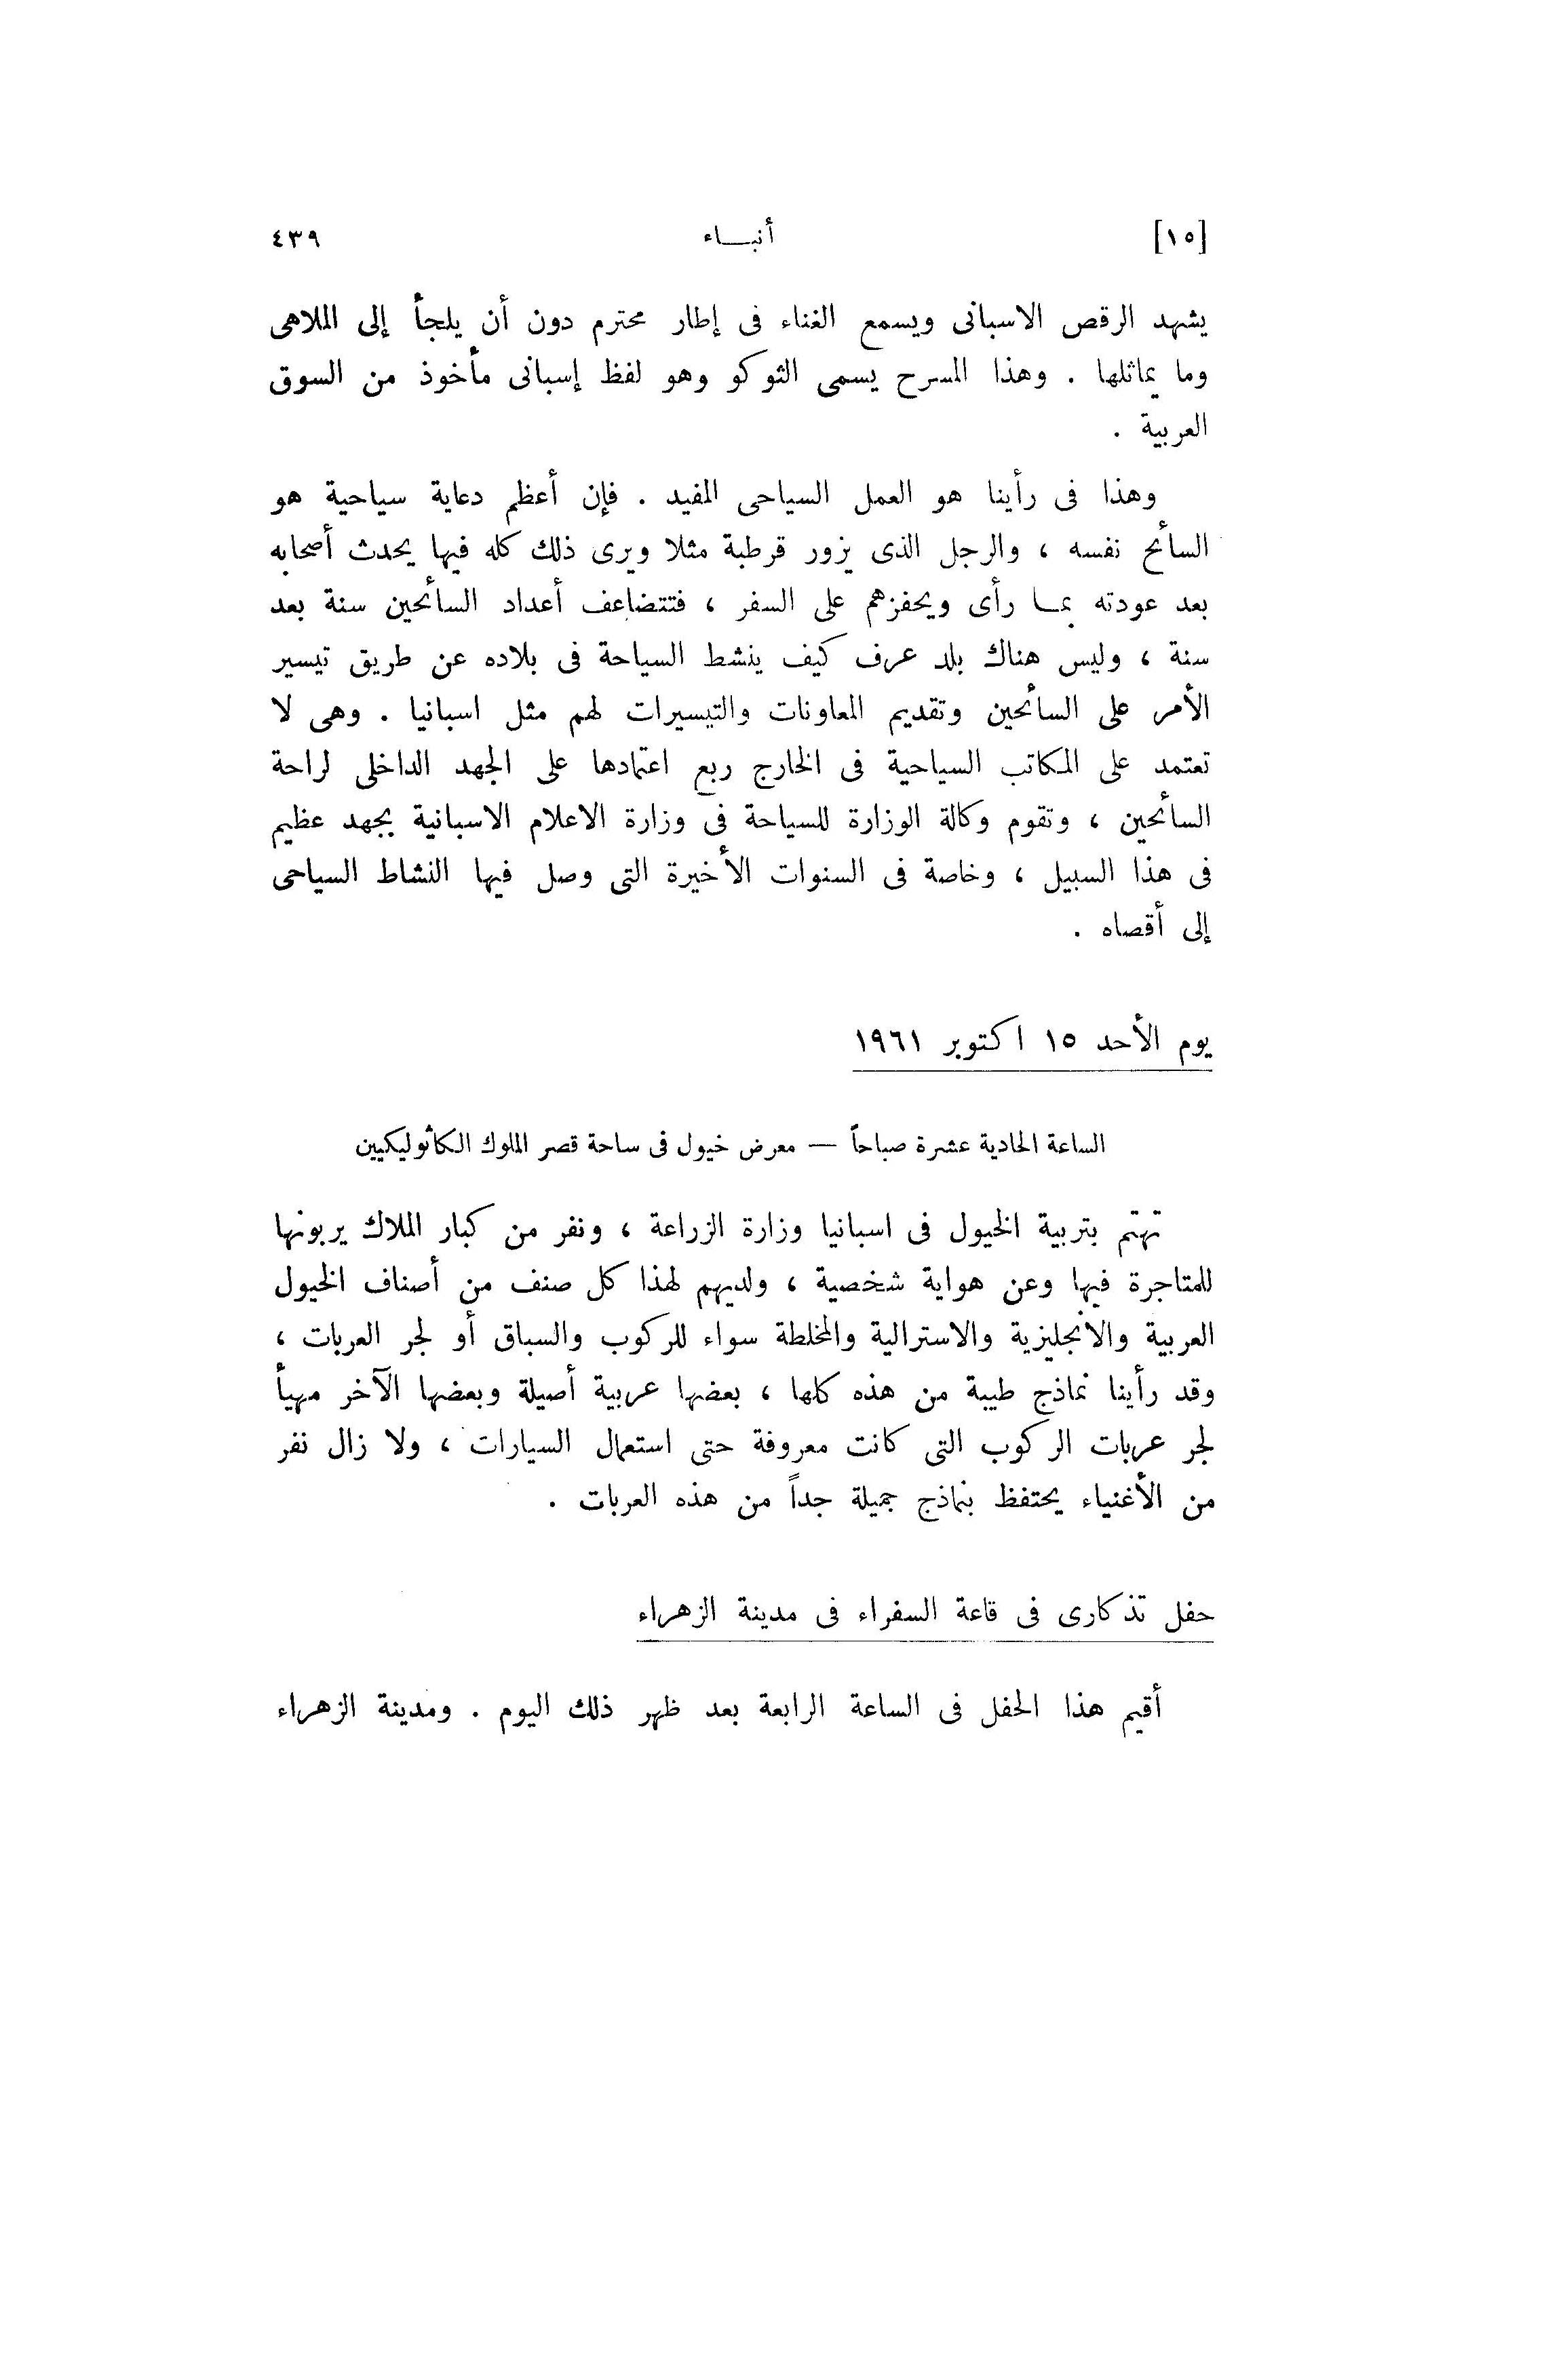 [١٥] أنبـــاء ٤٣٩
يشهد الرقص الاسبانى ويسمع الغناء فى إطار محترم دون أن يلجأ إلى الملاهى
وما يماثلها . وهذا المسرح يسمى الثوكو وهو لفظ إسبانى مأخوذ من السوق
العربية .
وهذا فى رأينا هو العمل السياحى المفيد . فإن أعظم دعاية سياحية هو
السائح نفسه ، والرجل الذى يزور قرطبة مثلا ويرى ذلك كله فيها يحدث أصحابه
بعد عودته بمـا رأى ويحفزهم على السفر ، فتتضاعف أعداد السائحين سنة بعد
سنة ، وليس هناك بلد عرف كيف ينشط السياحة فى بلاده عن طريق تيسير
الأمر على السائحين وتقديم المعاونات والتيسيرات لهم مثل اسبانيا . وهى لا
تعتمد على المكاتب السياحية فى الخارج ربع اعتمادها على الجهد الداخلى لراحة
السائحين ، وتقوم وكالة الوزارة للسياحة فى وزارة الاعلام الاسبانية بجهد عظيم
فى هذا السبيل ، وخاصة فى السنوات الأخيرة التى وصل فيها النشاط السياحى
إلى أقصاه .
يوم الأحد ١٥ اكتوبر ١٩٦١
الساعة الحادية عشرة صباحاً — معرض خيول فى ساحة قصر الملوك الكاثوليكيين
تهتم بتربية الخيول فى اسبانيا وزارة الزراعة ، ونفر من كبار الملاك يربونها
للمتاجرة فيها وعن هواية شخصية ، ولديهم لهذا كل صنف من أصناف الخيول
العربية والانجليزية والاسترالية والمخلطة سواء للركوب والسباق أو لجر العربات ،
وقد رأينا نماذج طيبة من هذه كلها ، بعضها عربية أصيلة وبعضها الآخر مهيأ
لجر عربات الركوب التى كانت معروفة حتى استعمال السيارات ، ولا زال نفر
من الأغنياء يحتفظ بنماذج جميلة جداً من هذه العربات .
حفل تذكارى فى قاعة السفراء فى مدينة الزهراء
أقيم هذا الحفل فى الساعة الرابعة بعد ظهر ذلك اليوم . ومدينة الزهراء